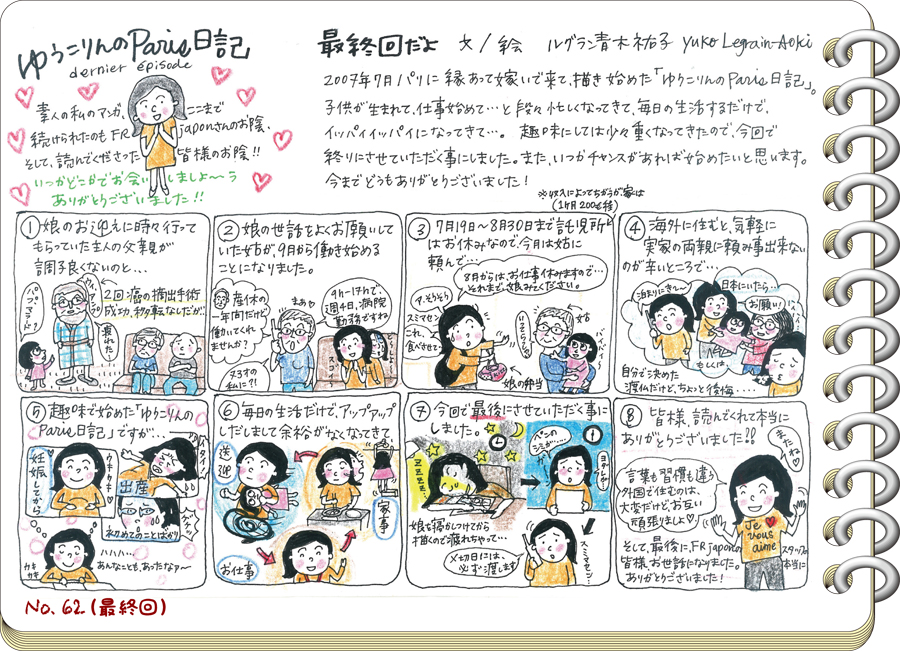 ゆうこりんのParis日記
dernier épisode
素人の私のマンガ、ここまで
続けられたのもFRjaponさんのお陰、
そして、読んでくださった皆様のお陰!!
いつかどこかでお会いしましょ〜う
ありがとうございました!!
最終回だよ 文/絵 ルグラン青木祐子 Yuko Legrain-Aoki
2007年7月パリに縁あって嫁いで来て、描き始めた「ゆうこりんのParis日記」。
子供が生まれて、仕事始めて…と段々忙しくなってきて、毎日の生活するだけで、
イッパイイッパイになってきて…。趣味にしては少々重くなってきたので、今回で
終りにさせていただく事にしました。また、いつかチャンスがあれば始めたいと思います。
今までどうもありがとうございました!
①娘のお迎えに時々行って
もらっていた主人の父親が
調子良くないのと…
2回癌の摘出手術
成功、移転なしだが…
疲れた
②娘の世話をよくお願いして
いた姑が、9月から働き始める
ことになりました。
産休の
一年間だけ
働いてくれ
ませんか?
まぁ♡
73才の
私に?!
9h〜17hで、
週4日、病院
勤務ですね
スゴイ〜
※収入によってちがうが家は
(1ヶ月200€位)
③7月19〜8月30日まで託児所
はお休みなので、今月は姑に
頼んで…
8月からは、お仕事休みますので…
それまで娘みてください。
ア、そうそう
スミマセン
これ、
食べさせて…
姑
バイバーイ
娘の弁当
④海外に住むと、気軽に
実家の両親に頼み事出来ない
のが辛いところで…
泊まりにきて〜
日本にいたら…
お願い!
もしくは、
自分で決めた
渡仏だけど、ちょっと後悔・・・・
⑤趣味で始めた「ゆうこりんの
Paris日記」ですが…
妊娠してから
ウキウキ♡
イタイ〜
出産
初めてのことばかり
カキカキ
ハハハ…
あんなことも、あったなァ〜
⑥毎日の生活だけで、アップアップ
だしまして余裕がなくなってきて
送迎
家事
お仕事
⑦今回で最後にさせていただく事に
しました。
ZZZZ…
娘を寝かしつけてから
描くので疲れちゃって…
ペンの
シミが…
ヨダレが…
スミマセン
〆切日には、
必ず渡します
⑧皆様、読んでくれて本当に
ありがとうございました!!
またね♡
言葉も習慣も違う
外国で住むのは、
大変だけど、お互い
頑張りましょ♡
Je
vous
aime
そして、最後に、FRjaponの
スタッフの
皆様、お世話になりました。
本当に
ありがとうございました!
No.62(最終回)